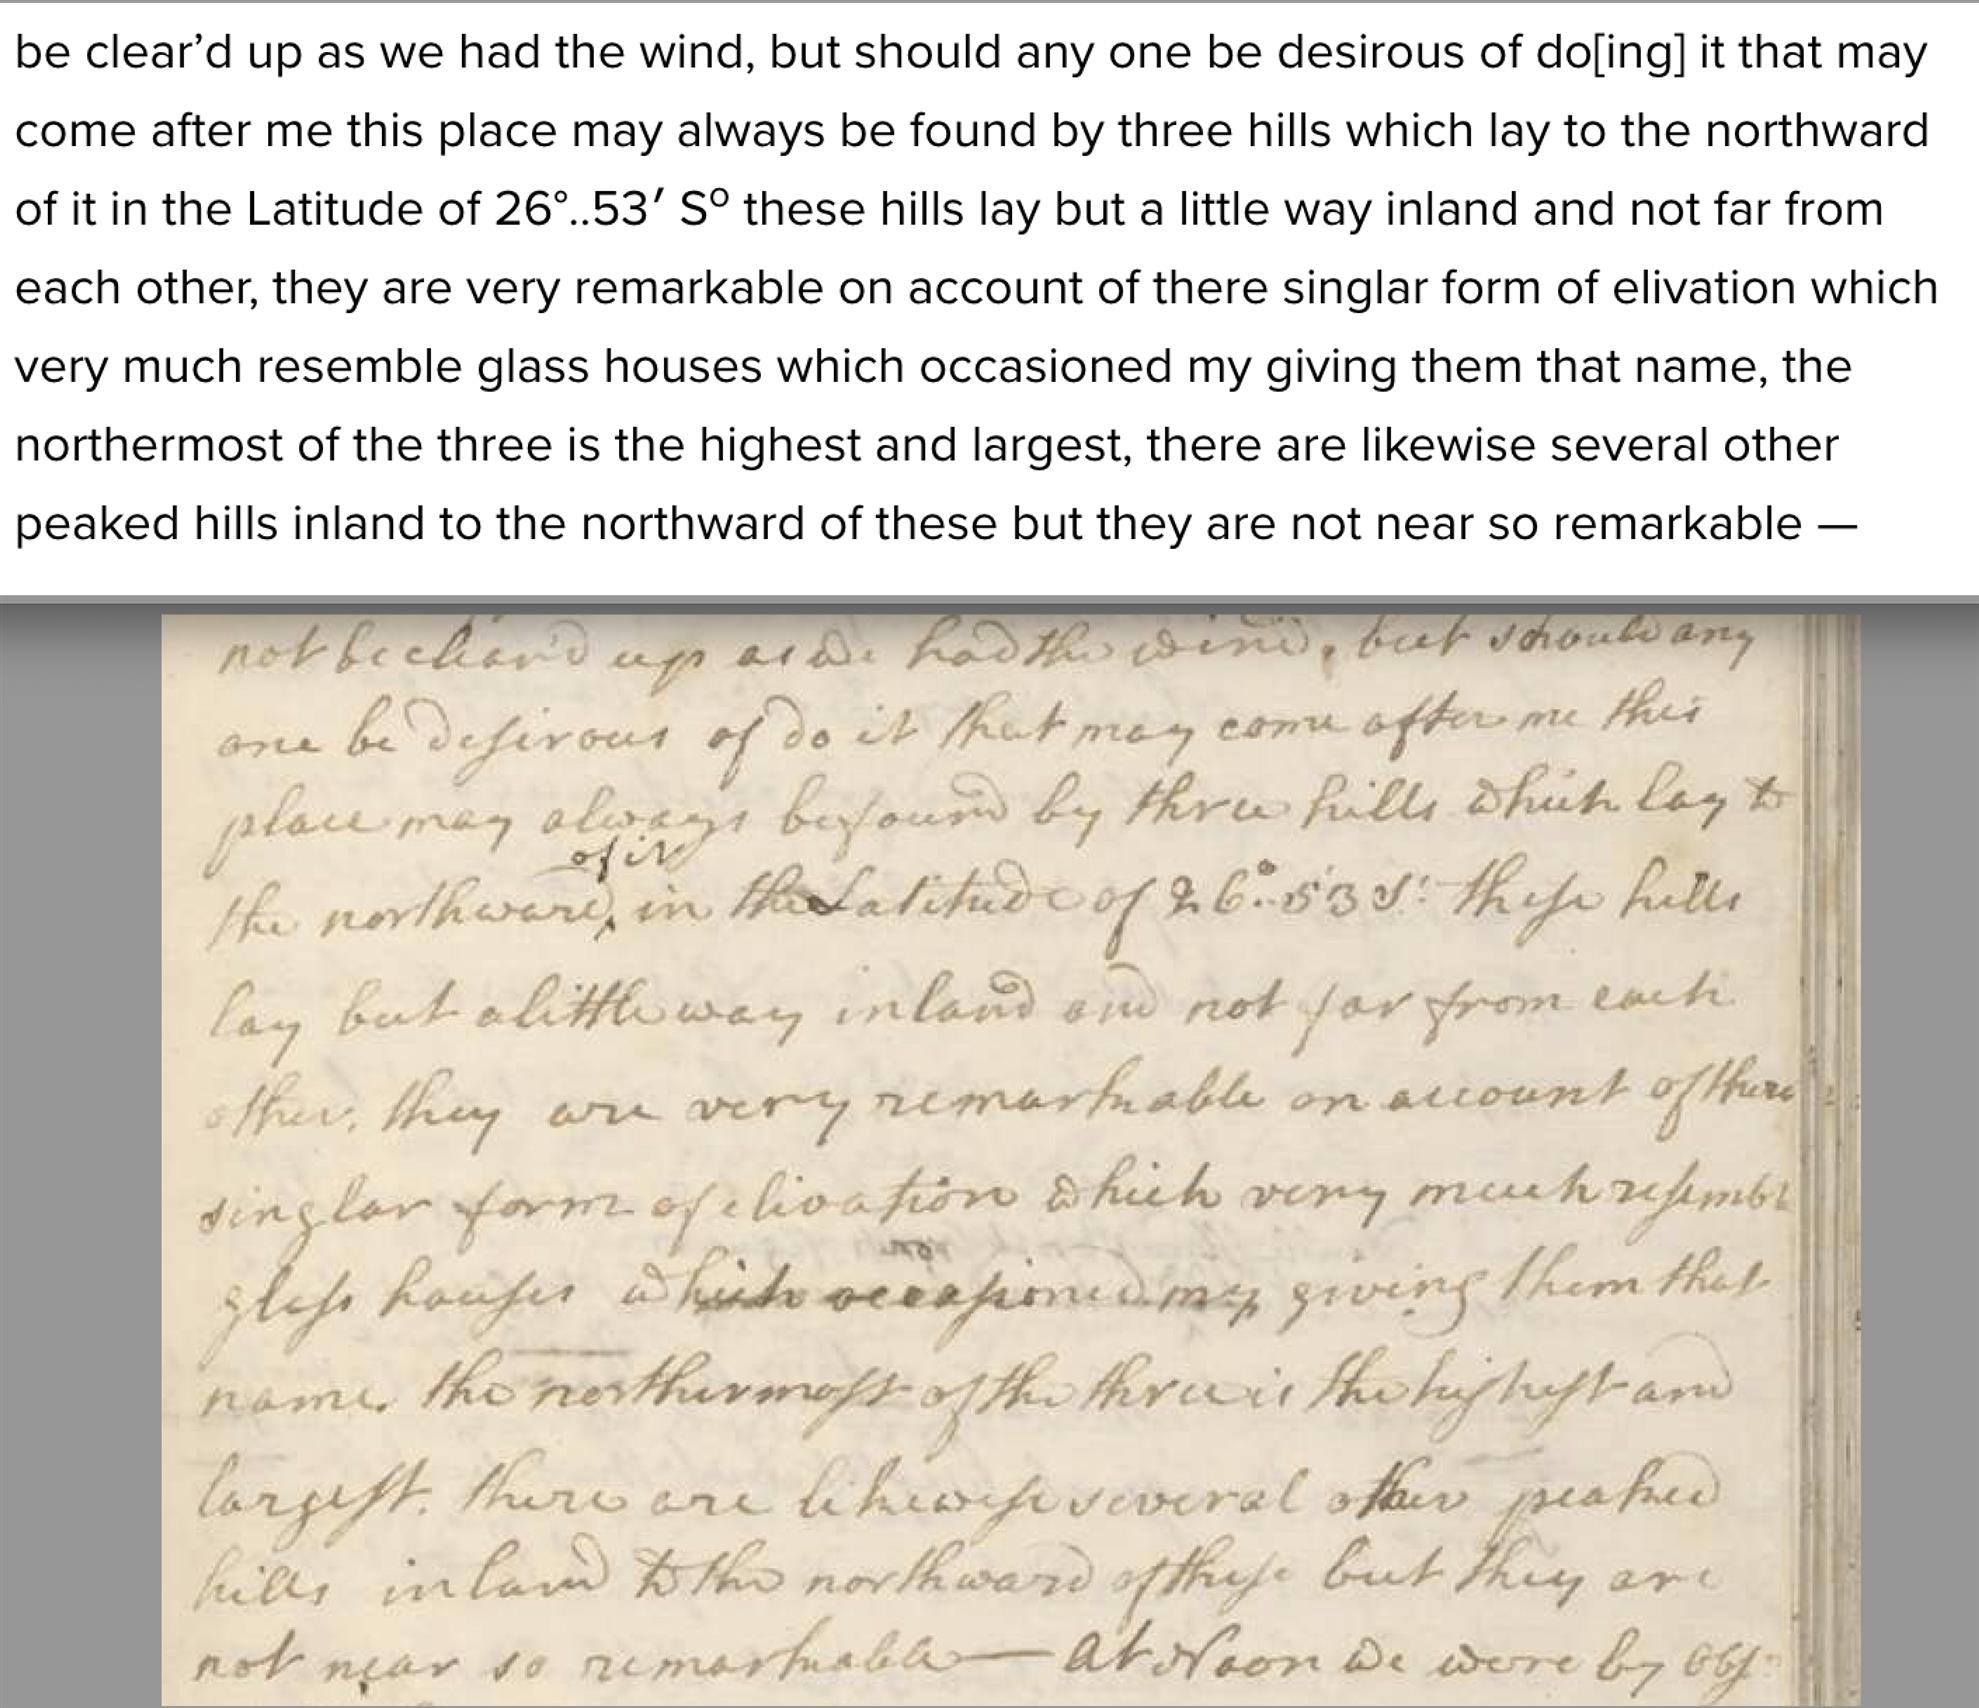 be clear’d up as we had the wind, but should any one be desirous of do[ing] it that may
come after me this place may always be found by three hills which lay to the northward
of it in the Latitude of 26°..53′ Sº these hills lay but a little way inland and not far from
each other, they are very remarkable on account of there singlar form of elivation which
very much resemble glass houses which occasioned my giving them that name, the
northermost of the three is the highest and largest, there are likewise several other
peaked hills inland to the northward of these but they are not near so remarkable —
not be clear'd up as we had the wind, but should any
one be desirous of do it that may come after me this
place may always be found by three hills which lay to
of it
the northward, in the Latitude of 26°..53' S: these hills
lay but a little way inland and not far from each
other, they are very remarkable on account of there
singlar form of elivation which very much resemble
glass houses which occasioned my giving them that
name. the northermost of the three is the highest and
largest. there are likewise several other peaked
hills inland to the northward of these but they are
not near so remarkable — At Noon we were by obs: